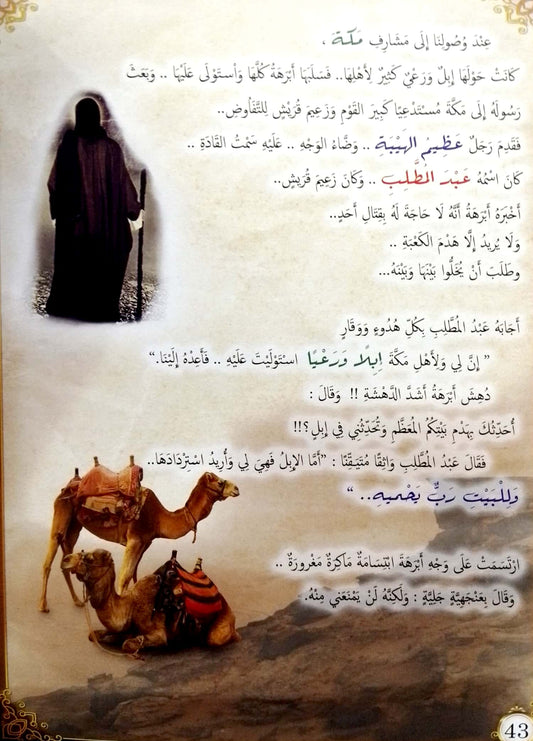 عِنْدَ وُصُولِنَا إِلَى مَشَارِفِ مَكَّةَ ،
كَانَتْ حَوْلَهَا إِبِلٌ وَرَعْيٌ كَثِيرٌ لِأَهْلِهَا.. فَسَلَبَهَا أَبْرَهَةُ كُلَّهَا وَاسْتَوْلَى عَلَيْهَا .. وَبَعَثَ
رَسُولَهُ إِلَى مَكَّةَ مُسْتَدْعِيًا كَبِيرَ القَوْمِ وَزَعِيمَ قُرَيْشٍ لِلتَّفَاوُضِ..
فَقَدِمَ رَجُلٌ عَظِيمُ الهَيْبَةِ .. وَضَّاءُ الوَجْهِ .. عَلَيْهِ سَمْتُ القَادَةِ ..
كَانَ اسْمُهُ عَبْدَ المُطَّلِبِ .. وَكَانَ زَعِيمَ قُرَيْشٍ..
أَخْبَرَهُ أَبْرَهَةُ أَنَّهُ لَا حَاجَةَ لَهُ بِقِتَالِ أَحَدٍ..
وَلَا يُرِيدُ إِلَّا هَدْمَ الكَعْبَةِ ..
وطَلَبَ أَنْ يُخَلُّوا بَيْنَهَا وَبَيْنَهُ...
أَجَابَهُ عَبْدُ المُطَّلِبِ بِكُلِّ هُدُوءٍ وَوَقَارٍ
" إِنَّ لِي وَلِأَهْلِ مَكَّةَ إِبِلًا وَرَعْيًا اسْتَوْلَيْتَ عَلَيْهِ .. فَأَعِدْهُ إِلَيْنَا."
دُهِشَ أَبْرَهَةُ أَشَدَّ الدَّهْشَةِ !! وَقَالَ :
أُحَدِّثُكَ بِهَدْمِ بَيْتِكُمُ المُعَظَّمِ وَتُحَدِّثُنِي فِي إِبِلٍ؟!!
فَقَالَ عَبْدُ المُطَّلِبِ وَاثِقًا مُتَيَقِّنًا : "أَمَّا الإِبِلُ فَهِيَ لِي وَأُرِيدُ اسْتِرْدَادَهَا..
وَلِلْبَيْتِ رَبٌّ يَحْمِيهِ.. "
ارْتَسَمَتْ عَلَى وَجْهِ أَبْرَهَةَ ابْتِسَامَةٌ مَاكِرَةٌ مَغْرُورَةٌ ..
وَقَالَ بِعَنْجَهِيَّةٍ جَلِيَّةٍ : وَلَكِنَّهُ لَنْ يَمْنَعَنِي مِنْهُ.
43